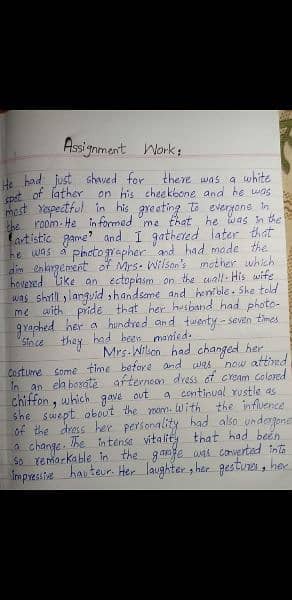 Assignment Work;
He had just shaved for there was a white
spot of lather on his cheekbone and he was
most respectful in his greeting to everyone in
the room. He informed me that he was in the
"artistic game" and I gathered later that
he was a photographer and had made the
dim enlargement of Mrs. Wilson's mother which
hovered like an ectoplasm on the wall. His wife
was shrill, languid, handsome and horrible. She told
me with pride that her husband had photo-
graphed her a hundred and twenty-seven times
since they had been married.
Mrs. Wilson had changed her
costume some time before and was now attired
in an elaborate afternoon dress of cream colored
chiffon, which gave out a continual rustle as
she swept about the room. With the influence
of the dress her personality had also undergone
a change. The intense vitality that had been
so remarkable in the garage was converted into
impressive hauteur. Her laughter, her gestures, her